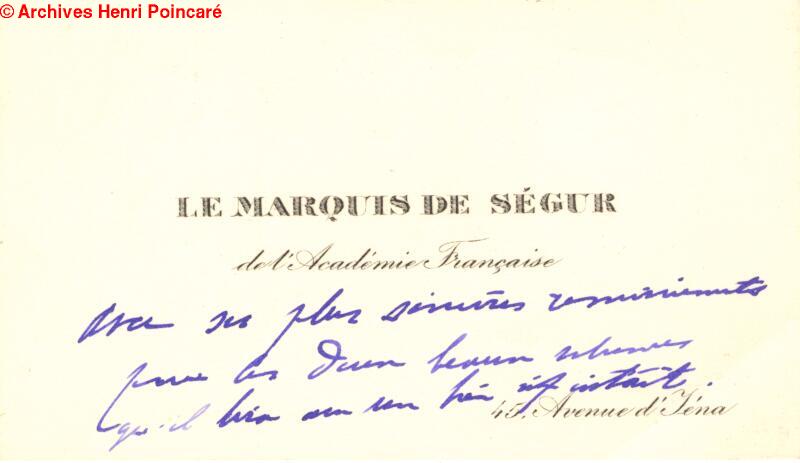 © Archives Henri Poincaré
LE MARQUIS DE SÉGUR
de l'Académie Française
Avec ses plus sincères remerciements
pour les deux beaux volumes
qu'il lira avec un bien vif intérêt.
45, Avenue d'Iéna